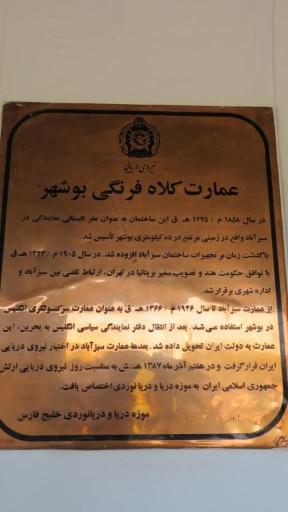 نیروی دریایی
عمارت کلاه فرنگی بوشهر
در سال ۱۸۵۸ م / ۱۲۷۵ هـ ق این ساختمان به عنوان مقر تابستانی نمایندگی در
سبزآباد واقع در زمینی مرتفع در ده کیلومتری بوشهر تأسیس شد.
باگذشت زمان بر تجهیزات ساختمان سبزآباد افزوده شد. در سال ۱۹۰۵ م / ۱۳۲۳ هـ ق
با توافق حکومت هند و تصویب سفیر بریتانیا در تهران، ارتباط تلفنی بین سبزآباد و
اداره شهری برقرار شد.
از عمارت سبزآباد تا سال ۱۹۴۶ م / ۱۳۶۶ هـ ق به عنوان عمارت سرکنسولگری انگلیس
در بوشهر استفاده می شد. بعد از انتقال دفتر نمایندگی سیاسی انگلیس به بحرین، این
عمارت به دولت ایران تحویل داده شد. بعدها عمارت سبزآباد در اختیار نیروی دریایی
ایران قرار گرفت و در هفتم آذر ماه ۱۳۸۷ هـ ش به مناسبت روز نیروی دریایی ارتش
جمهوری اسلامی ایران به موزه دریا و دریا نوردی اختصاص یافت.
موزه دریا و دریانوردی خلیج فارس